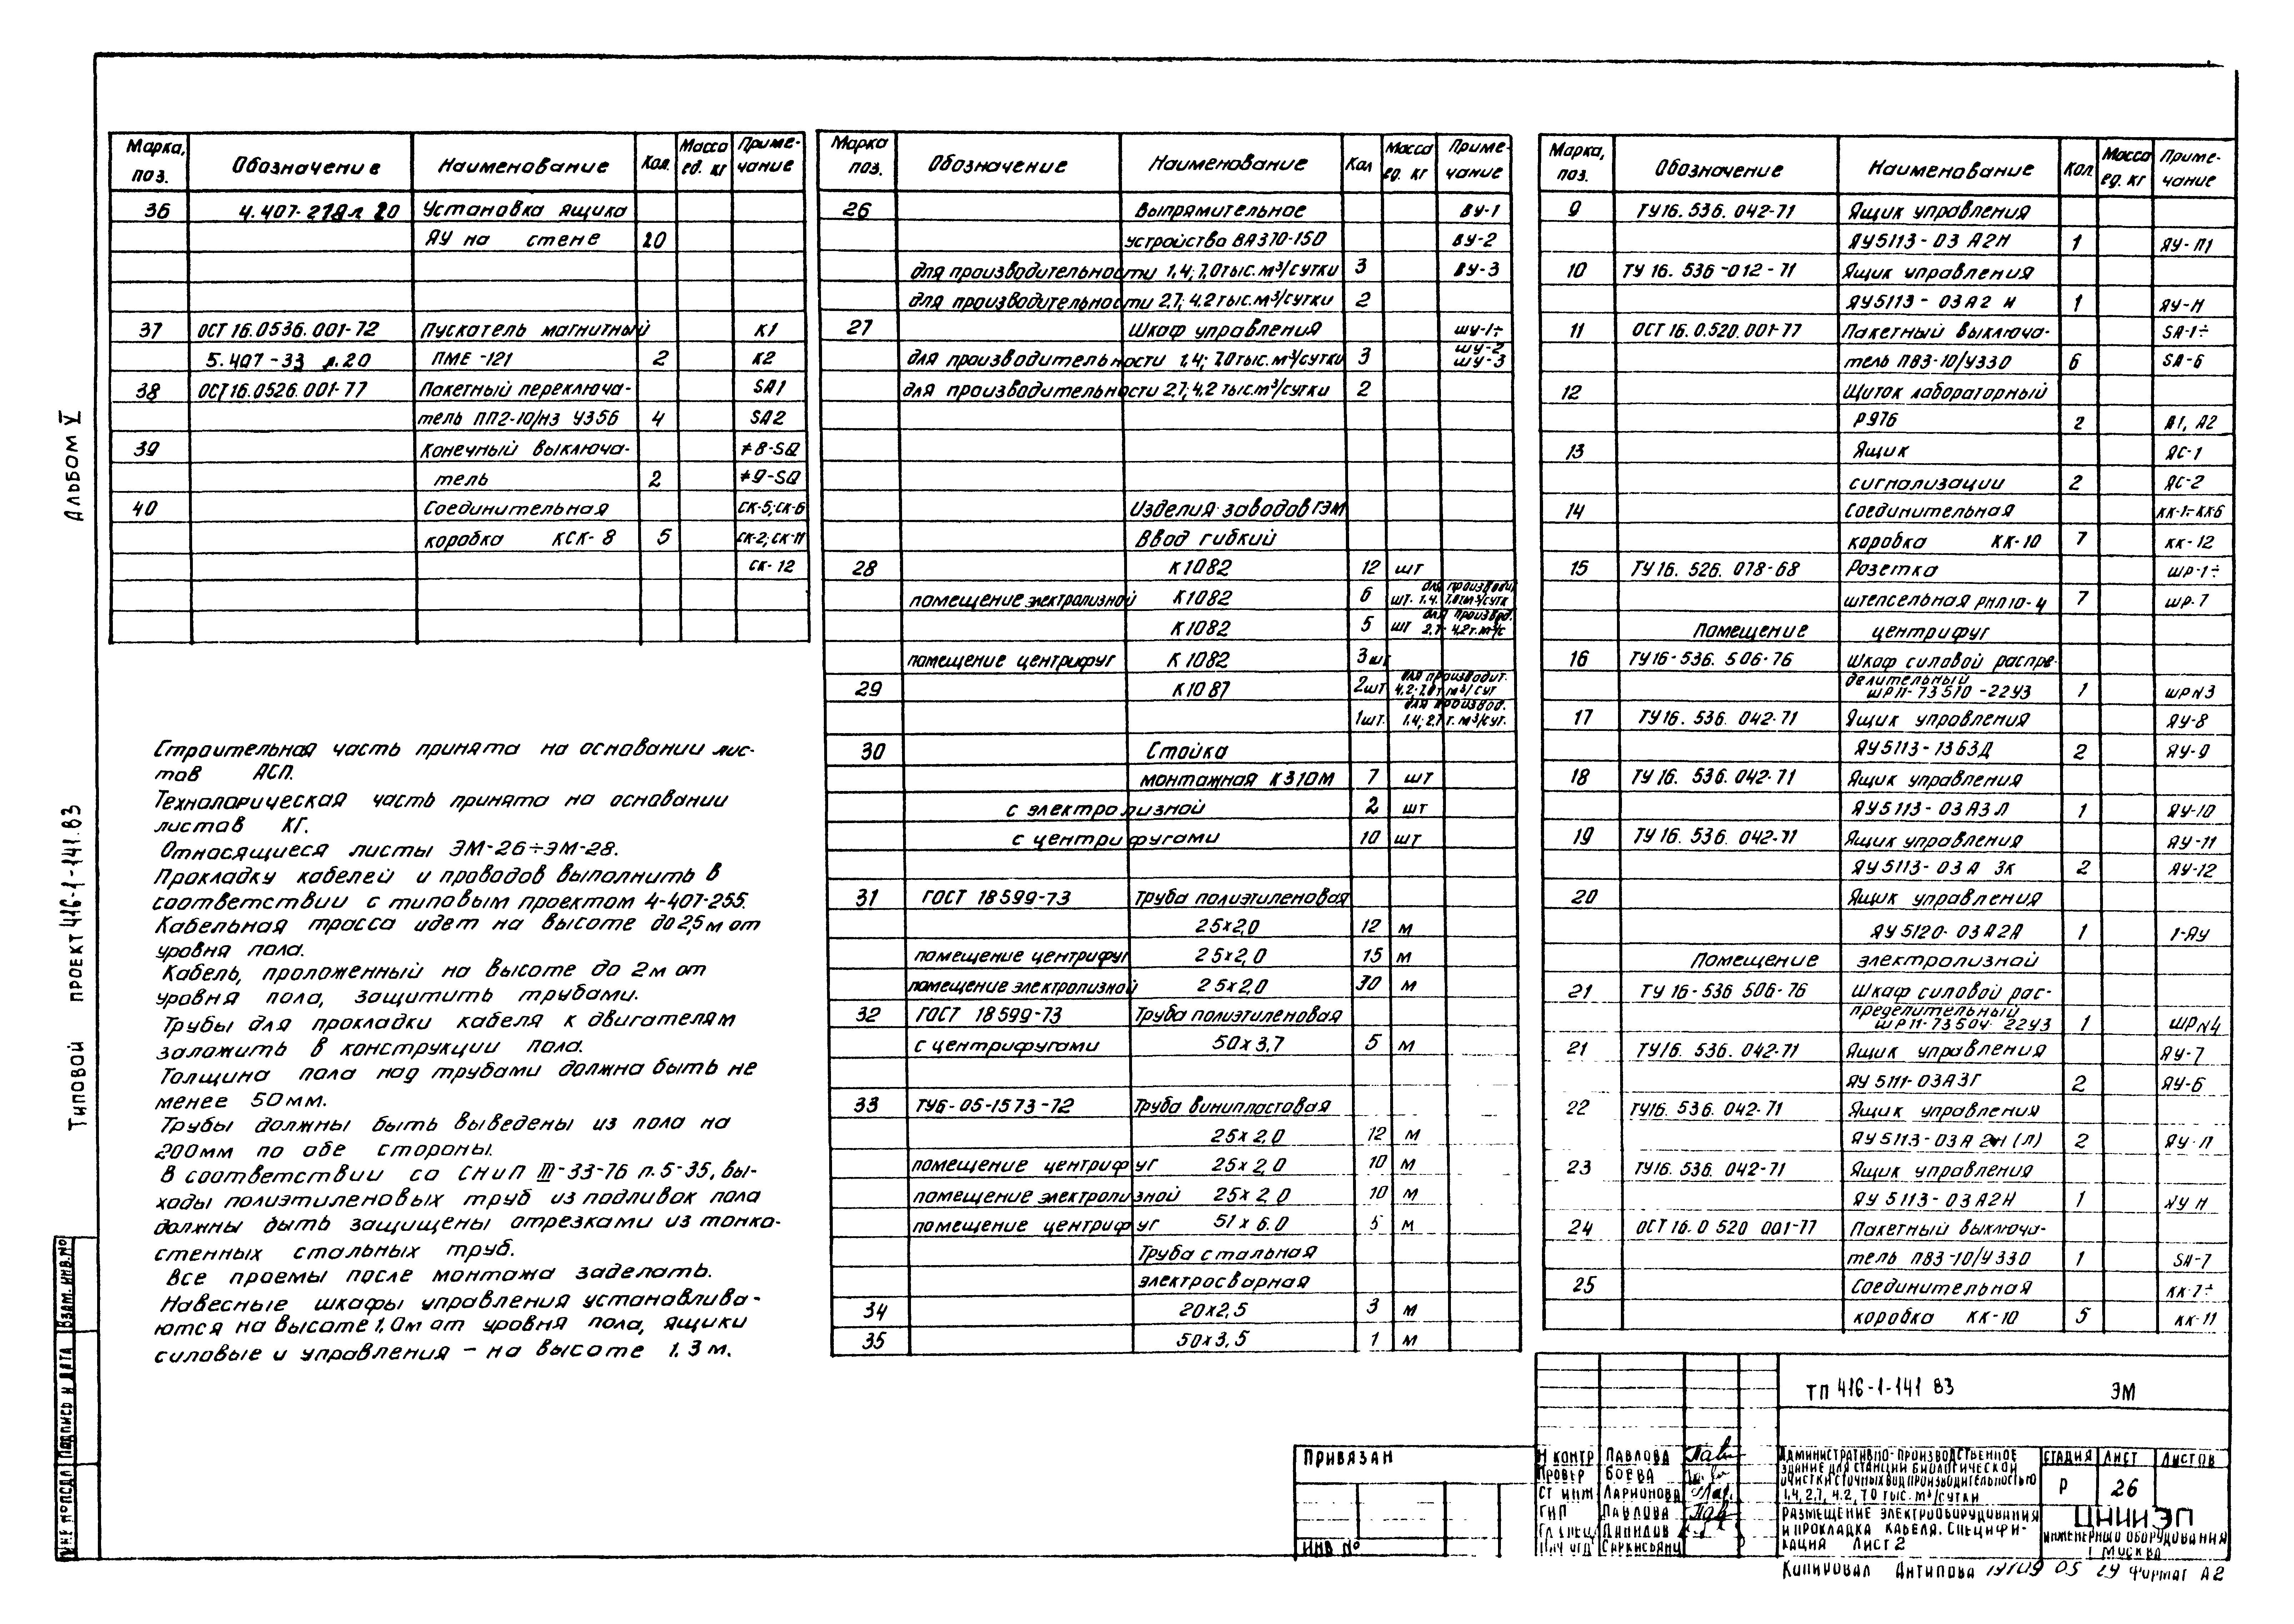 Альбом V
Типовой проект 416-1-141.83
Взам. инв. №
Подпись и дата
Марка, поз. Обозначение Наименование Кол. Масса ед. кг Примечание
36 Установка ящика
ЯУ на стене 20
37 ОСТ 16.0536.001-72 Пускатель магнитный К1
5.407-33 л.20 ПМЕ-121 2 К2
38 ОСТ 16.0526.001-77 Пакетный переключа- SA1
тель ПП2-10/Н3 У356 4 SA2
39 Конечный выключа- ≠8-SQ
тель 2 ≠9-SQ
40 Соединительная СК-5; СК-6
коробка КСК-8 5 СК-2; СК-11
СК-12
Строительная часть принята на основании лис-
тов АСП.
Технологическая часть принята на основании
листов КГ.
Относящиеся листы ЭМ-26÷ЭМ-28.
Прокладку кабелей и проводов выполнить в
соответствии с типовым проектом 4-407-255.
Кабельная трасса идет на высоте до 2,5 м от
уровня пола.
Кабель, проложенный на высоте до 2м от
уровня пола, защитить трубами.
Трубы для прокладки кабеля к двигателям
заложить в конструкции пола.
Толщина пола над трубами должна быть не
менее 50мм.
Трубы должны быть выведены из пола на
200мм по обе стороны.
В соответствии со СНиП III-33-76 п.5-35, вы-
ходы полиэтиленовых труб из подливок пола
должны быть защищены отрезками из тонко-
стенных стальных труб.
Все проемы после монтажа заделать.
Навесные шкафы управления устанавлива-
ются на высоте 1,0м от уровня пола, ящики
силовые и управления – на высоте 1.3м.
Марка поз. Обозначение Наименование Кол Масса ед. кг Примечание
26 Выпрямительное ВУ-1
устройства ВАЗ70-150 ВУ-2
для производительности 1,4; 7,0тыс.м³/сутки 3 ВУ-3
для производительности 2,7; 4.2 тыс.м³/сутки 2
27 Шкаф управления ШУ-1÷
ШУ-2
для производительности 1,4; 7.0тыс.м³/сутки 3 ШУ-3
для производительности 2,7; 4,2 тыс.м³/сутки 2
Изделия заводов ГЭМ
Ввод гибкий
28 К1082 12 шт
помещение электролизной К1082 6 шт. для производит. 1,4. 7.0т м³/сутк
К1082 5 шт для производ. 2,7- 4,2т.м³/с
помещение центрифуг К1082 3шт
29 К1087 2шт для производит. 4,2-7,0т м³/сут
1шт. для производ. 1,4; 2,7 т. м³/сут.
30 Стойка
монтажная К310М 7 шт
с электролизной 2 шт
с центрифугами 10 шт
31 ГОСТ 18599-73 Труба полиэтиленовая
25х2,0 12 м
помещение центрифуг 25х2,0 15 м
помещение электролизной 25х2,0 30 м
32 ГОСТ 18599-73 Труба полиэтиленовая
с центрифугами 50х3,7 5 м
33 ТУ6-05-1573-72 Труба винипластовая
25х2,0 12 м
помещение центрифуг 25х2,0 10 м
помещение электролизной 25х2,0 10 м
помещение центрифуг 51х6.0 5 м
Труба стальная
электросварная
34 20х2,5 3 м
35 50х3,5 1 м
Марка, поз. Обозначение Наименование Кол Масса ед. кг Примечание
9 ТУ16. 536. 042-71 Ящик управления
ЯУ5113-03 А2Н 1 ЯУ-П1
10 ТУ 16. 536-012-71 Ящик управления
ЯУ5113-03А2 Н 1 ЯУ-Н
11 ОСТ 16.0.520.001-77 Пакетный выключа- SA-1÷
тель ПВ3-10/У330 6 SA-6
12 Щиток лабораторный
Р976 2 А1, А2
13 Ящик ЯС-1
сигнализации 2 ЯС-2
14 Соединительная КК-1÷КК6
коробка КК-10 7 КК-12
15 ТУ 16. 526. 078-68 Розетка ШР-1÷
штепсельная РНП10-4 7 ШР-7
Помещение центрифуг
16 ТУ16-536. 506-76 Шкаф силовой распре-
делительный
ШР11-73510-22У3 1 ШР№3
17 ТУ16. 536. 042-71 Ящик управления ЯУ-8
ЯУ5113-13БЗД 2 ЯУ-9
18 ТУ 16. 536.042-71 Ящик управления
ЯУ5113-03А3Л 1 ЯУ-10
19 ТУ 16. 536.042-71 Ящик управления ЯУ-11
ЯУ 5113-03 А 3К 2 ЯУ-12
20 Ящик управления
ЯУ 5120-03А2А 1 1-ЯУ
Помещение электролизной
21 ТУ 16-536 506-76 Шкаф силовой рас-
пределительный
ШР11-73504-22У3 1 ШР№4
21 ТУ16. 536. 042-71 Ящик управления ЯУ-7
ЯУ 5111-03А3Г 2 ЯУ-6
22 ТУ16. 536. 042-71 Ящик управления
ЯУ 5113-03А 2Н (Л) 2 ЯУ-Л
23 ТУ16. 536. 042-71 Ящик управления
ЯУ 5113-03А2Н 1 ЯУ Н
24 ОСТ 16.0 520 001-77 Пакетный выключа-
тель ПВ3-10/У330 1 SA-7
25 Соединительная КК-7÷
коробка КК-10 5 КК-11
ТП 416-1-141 83 ЭМ
Привязан
Инв №
Н контр Павлова
Провер Боева
Ст инж Ларионова
ГИП Павлова
Гл спец Данилов
Нач отд Саркисьянц
Административно-производственное
здание для станции биологической
очистки сточных вод производительностью
1,4, 2,7, 4.2, 7,0 тыс. м³/сутки
Стадия Лист Листов
Р 26
Размещение электрооборудования
и прокладка кабеля. Специфи-
кация Лист 2
ЦНИИЭП
инженерного оборудования
г Москва
Копировал Антипова Формат А2